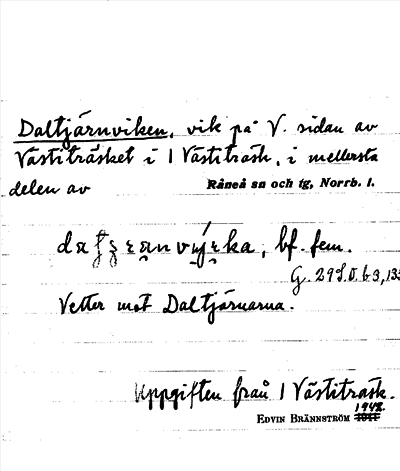 Daltjärnviken, vik på V. sidan av
Västiträsket i 1 Västiträsk, i mellersta
delen av Råneå sn och tg, Norrb. l.
bf. fem.
G. 29
Vetter mot Daltjärnarna.
Uppgiften från 1 Västiträsk.
1942.
EDVIN BRÄNNSTRÖM